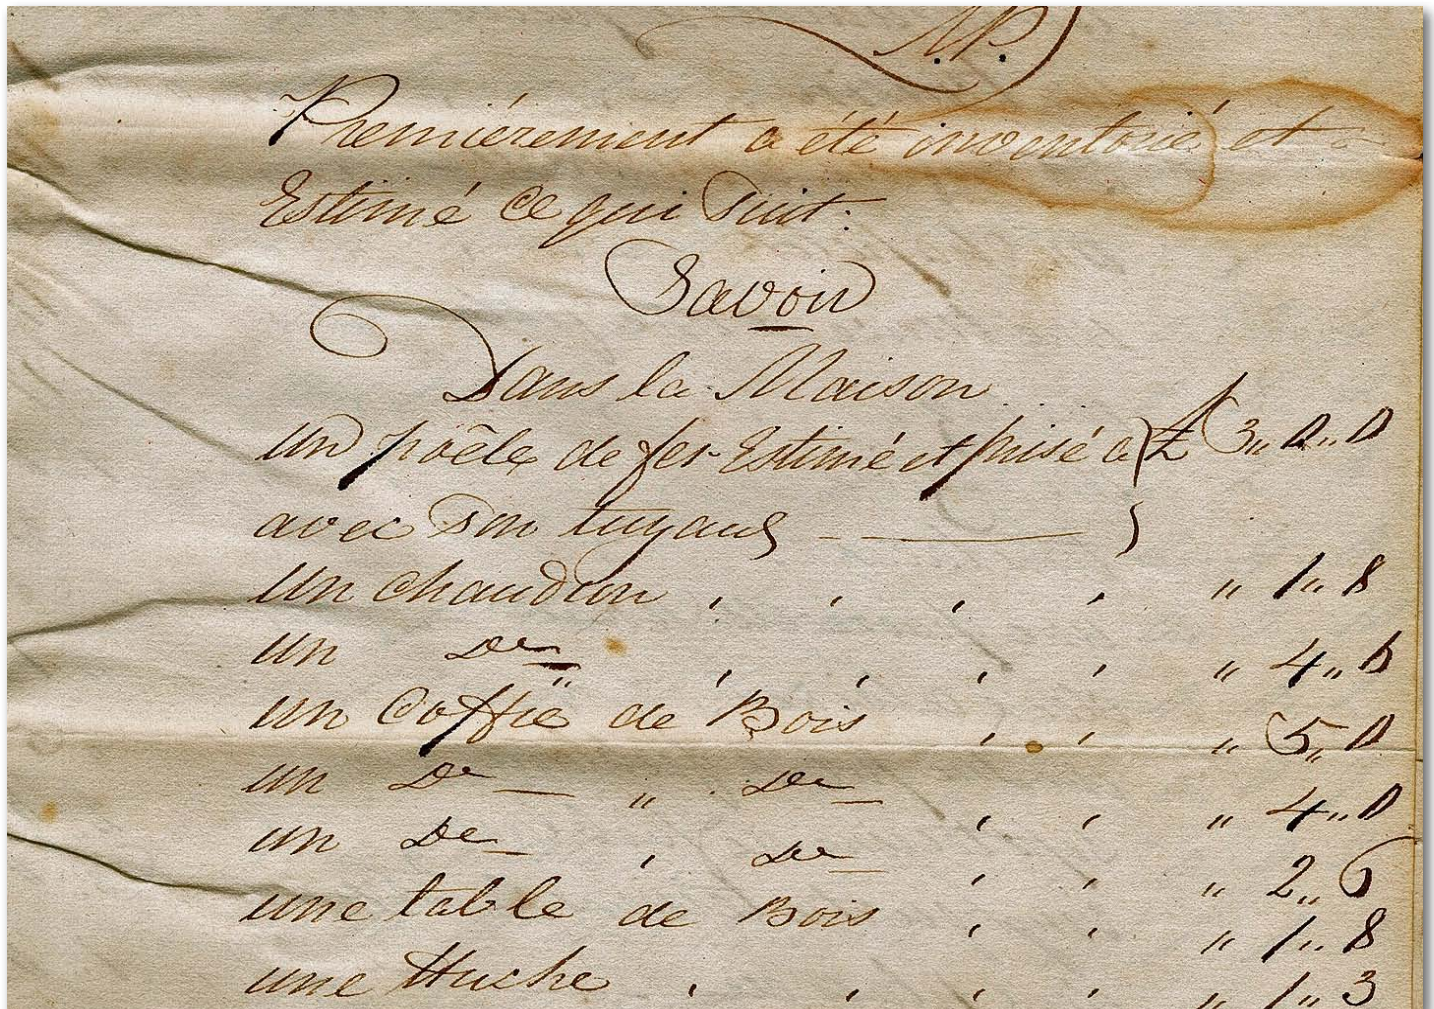 N.P.
Premiérement a été inventorié et
Estimé Ce qui Suit:
Savoir
Dans la Maison
un poêle de fer Estimé et prisé a £ 3,, 0,, 0
avec Son tuyaux
un chaudron , , , , ,, 1,, 8
un De , , , , ,, 4,,
un Coffre de Bois , , ,, 5,, 0
un De ,, De , , ,, 4,, 0
un De , De , , ,, 2,, 6
une table de Bois , , ,, 1,, 8
une Huche , , , , ,, 1,, 3